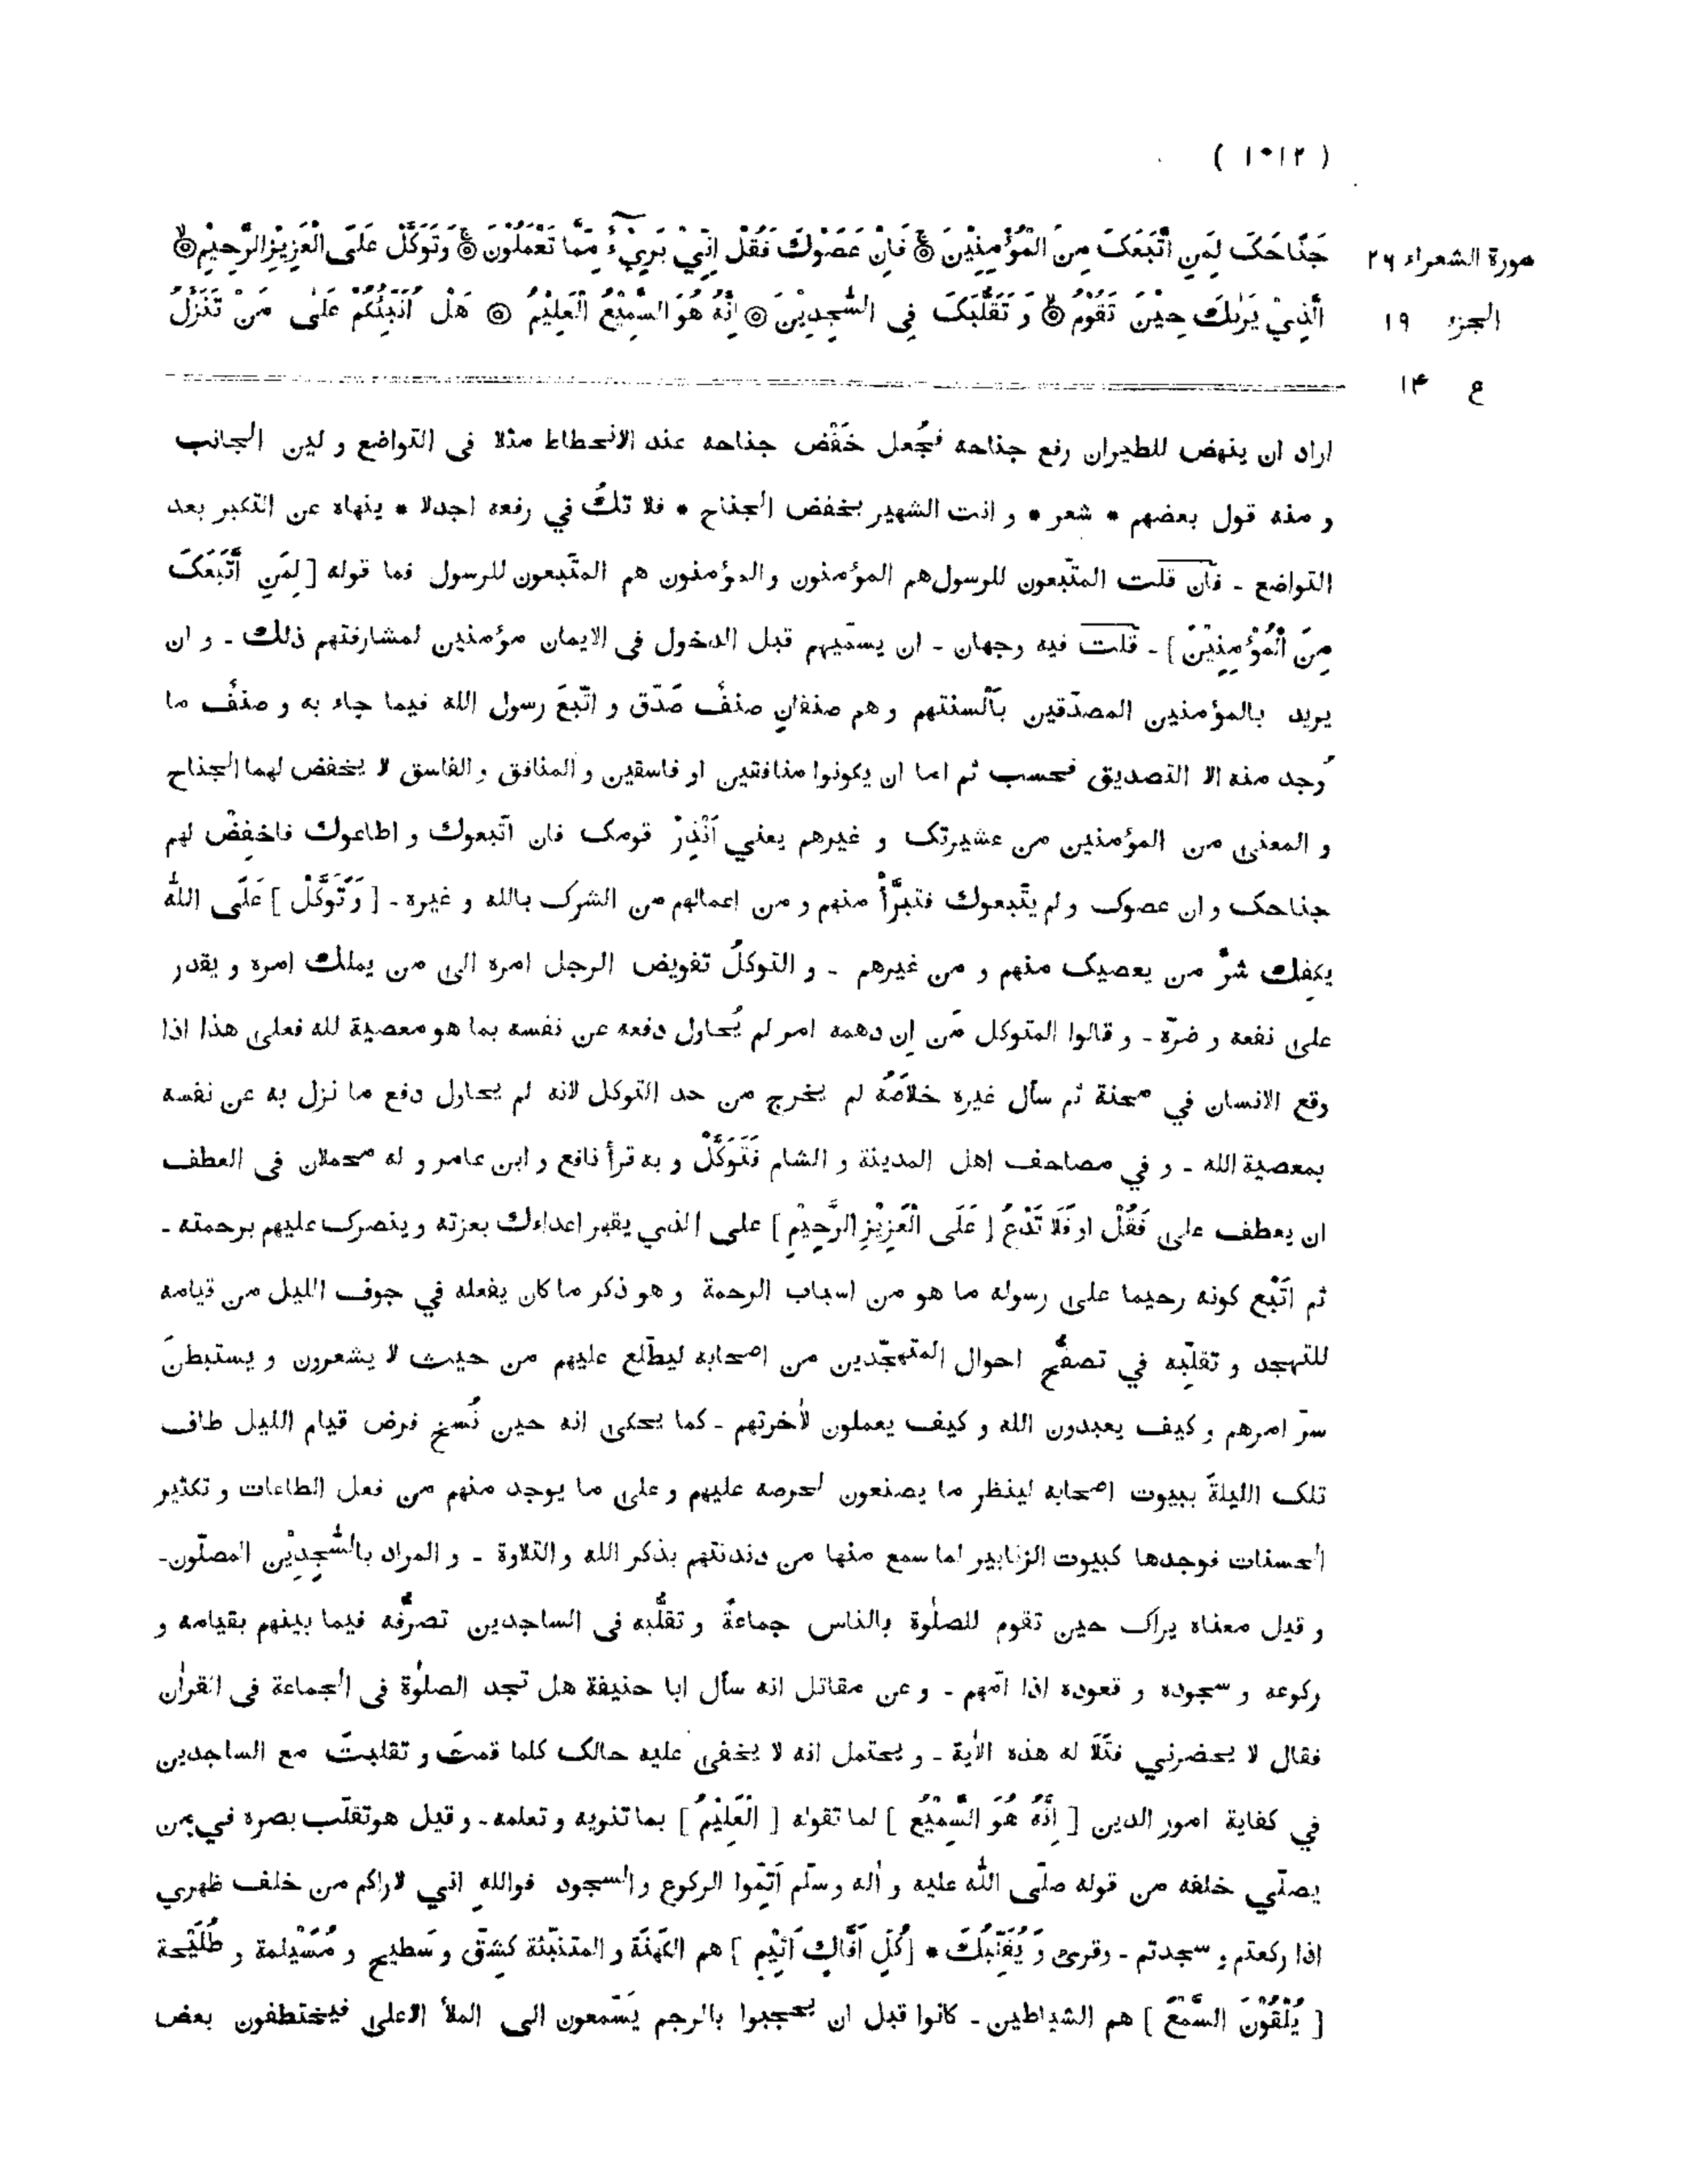 ( ١٠١٢ )
سورة الشعراء ٢٦
الجزء ١٩
ع ١٤
جَنَاحَكَ لِمَنِ اتَّبَعَكَ مِنَ الْمُؤْمِنِيْنَ ۞ فَاِنْ عَصَوْكَ فَقُلْ اِنِّيْ بَرِيْءٌ مِّمَّا تَعْمَلُوْنَ ۞ وَتَوَكَّلْ عَلَى الْعَزِيْزِ الرَّحِيْمِ ۞
الَّذِيْ يَرٰىكَ حِيْنَ تَقُوْمُ ۞ وَ تَقَلُّبَكَ فِى السّٰجِدِيْنَ ۞ اِنَّهُ هُوَ السَّمِيْعُ الْعَلِيْمُ ۞ هَلْ اُنَبِّئُكُمْ عَلٰى مَنْ تَنَزَّلُ
اراد ان ينهض للطيران رفع جناحه فجُعل خَفْض جناحه عند الانحطاط مثلا فى التواضع و لين الجانب
و منه قول بعضهم * شعر * و انت الشهير بخفض الجناح * فلا تكُ في رفعه اجدلا * ينهاه عن التكبر بعد
التواضع - فان قلت المتّبعون للرسول هم المؤمنون والمؤمنون هم المتّبعون للرسول فما قوله [ لِمَنِ اتَّبَعَكَ
مِنَ الْمُؤْمِنِيْنَ ] - قلت فيه وجهان - ان يسمّيهم قبل الدخول فى الايمان مؤمنين لمشارفتهم ذلك - و ان
يريد بالمؤمنين المصدّقين بألسنتهم و هم صنفانِ صنفٌ صَدّق و اتّبعَ رسول الله فيما جاء به و صنفٌ ما
وُجد منه الا التصديق فحسب ثم اما ان يكونوا منافقين او فاسقين و المنافق و الفاسق لا يخفض لهما الجناح
و المعنى من المؤمنين من عشيرتك و غيرهم يعني اَنْذِرْ قومك فان اتّبعوك و اطاعوك فاخفِضْ لهم
جناحك و ان عصوك و لم يتّبعوك فتبرَّأْ منهم و من اعمالهم من الشرك بالله و غيره - [ وَتَوَكَّلْ ] عَلَى اللّٰه
يكفِك شرَّ من يعصيك منهم و من غيرهم - و التوكلُ تفويض الرجل امره الى من يملك امره و يقدر
على نفعه و ضرّه - و قالوا المتوكل مَن اِن دهمه امر لم يُحاول دفعه عن نفسه بما هو معصية لله فعلى هذا اذا
وقع الانسان في محنة ثم سأل غيره خلاصَهُ لم يخرج من حد التوكل لانه لم يحاول دفع ما نزل به عن نفسه
بمعصية الله - و في مصاحف اهل المدينة و الشام فَتَوَكَّلْ و به قرأ نافع و ابن عامر و له محملان فى العطف
ان يعطف على فَقُلْ او فَلَا تَدْعُ [ عَلَى الْعَزِيْزِ الرَّحِيْمِ ] على الذي يقهر اعداءك بعزته و ينصرك عليهم برحمته -
ثم اَتْبع كونه رحيما على رسوله ما هو من اسباب الرحمة و هو ذكر ما كان يفعله في جوف الليل من قيامه
للتهجد و تقلّبِه في تصفّح احوال المتهجّدين من اصحابه ليطّلع عليهم من حيث لا يشعرون و يستبطنَ
سرّ امرهم و كيف يعبدون الله و كيف يعملون لاٰخرتهم - كما يحكى انه حين نُسخ فرض قيام الليل طاف
تلك الليلةَ ببيوت اصحابه لينظر ما يصنعون لحرصه عليهم و على ما يوجد منهم من فعل الطاعات و تكثير
الحسنات فوجدها كبيوت الزنابير لما سمع منها من دندنتهم بذكر الله و التلاوة - و المراد بالسّٰجِدِيْن المصلّون-
و قيل معناه يراك حين تقوم للصلٰوة بالناس جماعةً و تقلُّبه فى الساجدين تصرُّفه فيما بينهم بقيامه و
ركوعه و سجوده و قعوده اذا امّهم - و عن مقاتل انه سأل ابا حنيفة هل تجد الصلٰوة فى الجماعة فى القراٰن
فقال لا يحضرني فتَلَا له هذه الاٰية - و يحتمل انه لا يخفى عليه حالك كلما قمتَ و تقلبتَ مع الساجدين
في كفاية امور الدين [ اِنَّهُ هُوَ السَّمِيْعُ ] لما تقوله [ الْعَلِيْمُ ] بما تنويه و تعلمه - و قيل هو تقلّب بصره في من
يصلّي خلفه من قوله صلّى اللّٰه عليه و اٰله و سلّم اَتِمّوا الركوع و السجود فواللهِ اني لاراكم من خلف ظهري
اذا ركعتم و سجدتم - وقرئ وَ يُقَلِّبُكَ * [ كُلِّ اَفَّاكٍ اَثِيْمٍ ] هم الكَهَنَة و المتنبّئة كشِقّ و سَطيح و مُسَيْلمة و طُلَيْحة
[ يُلْقُوْنَ السَّمْعَ ] هم الشياطين - كانوا قبل ان يحجبوا بالرجم يَسّمعون الى الملأ الاعلى فيختطفون بعض